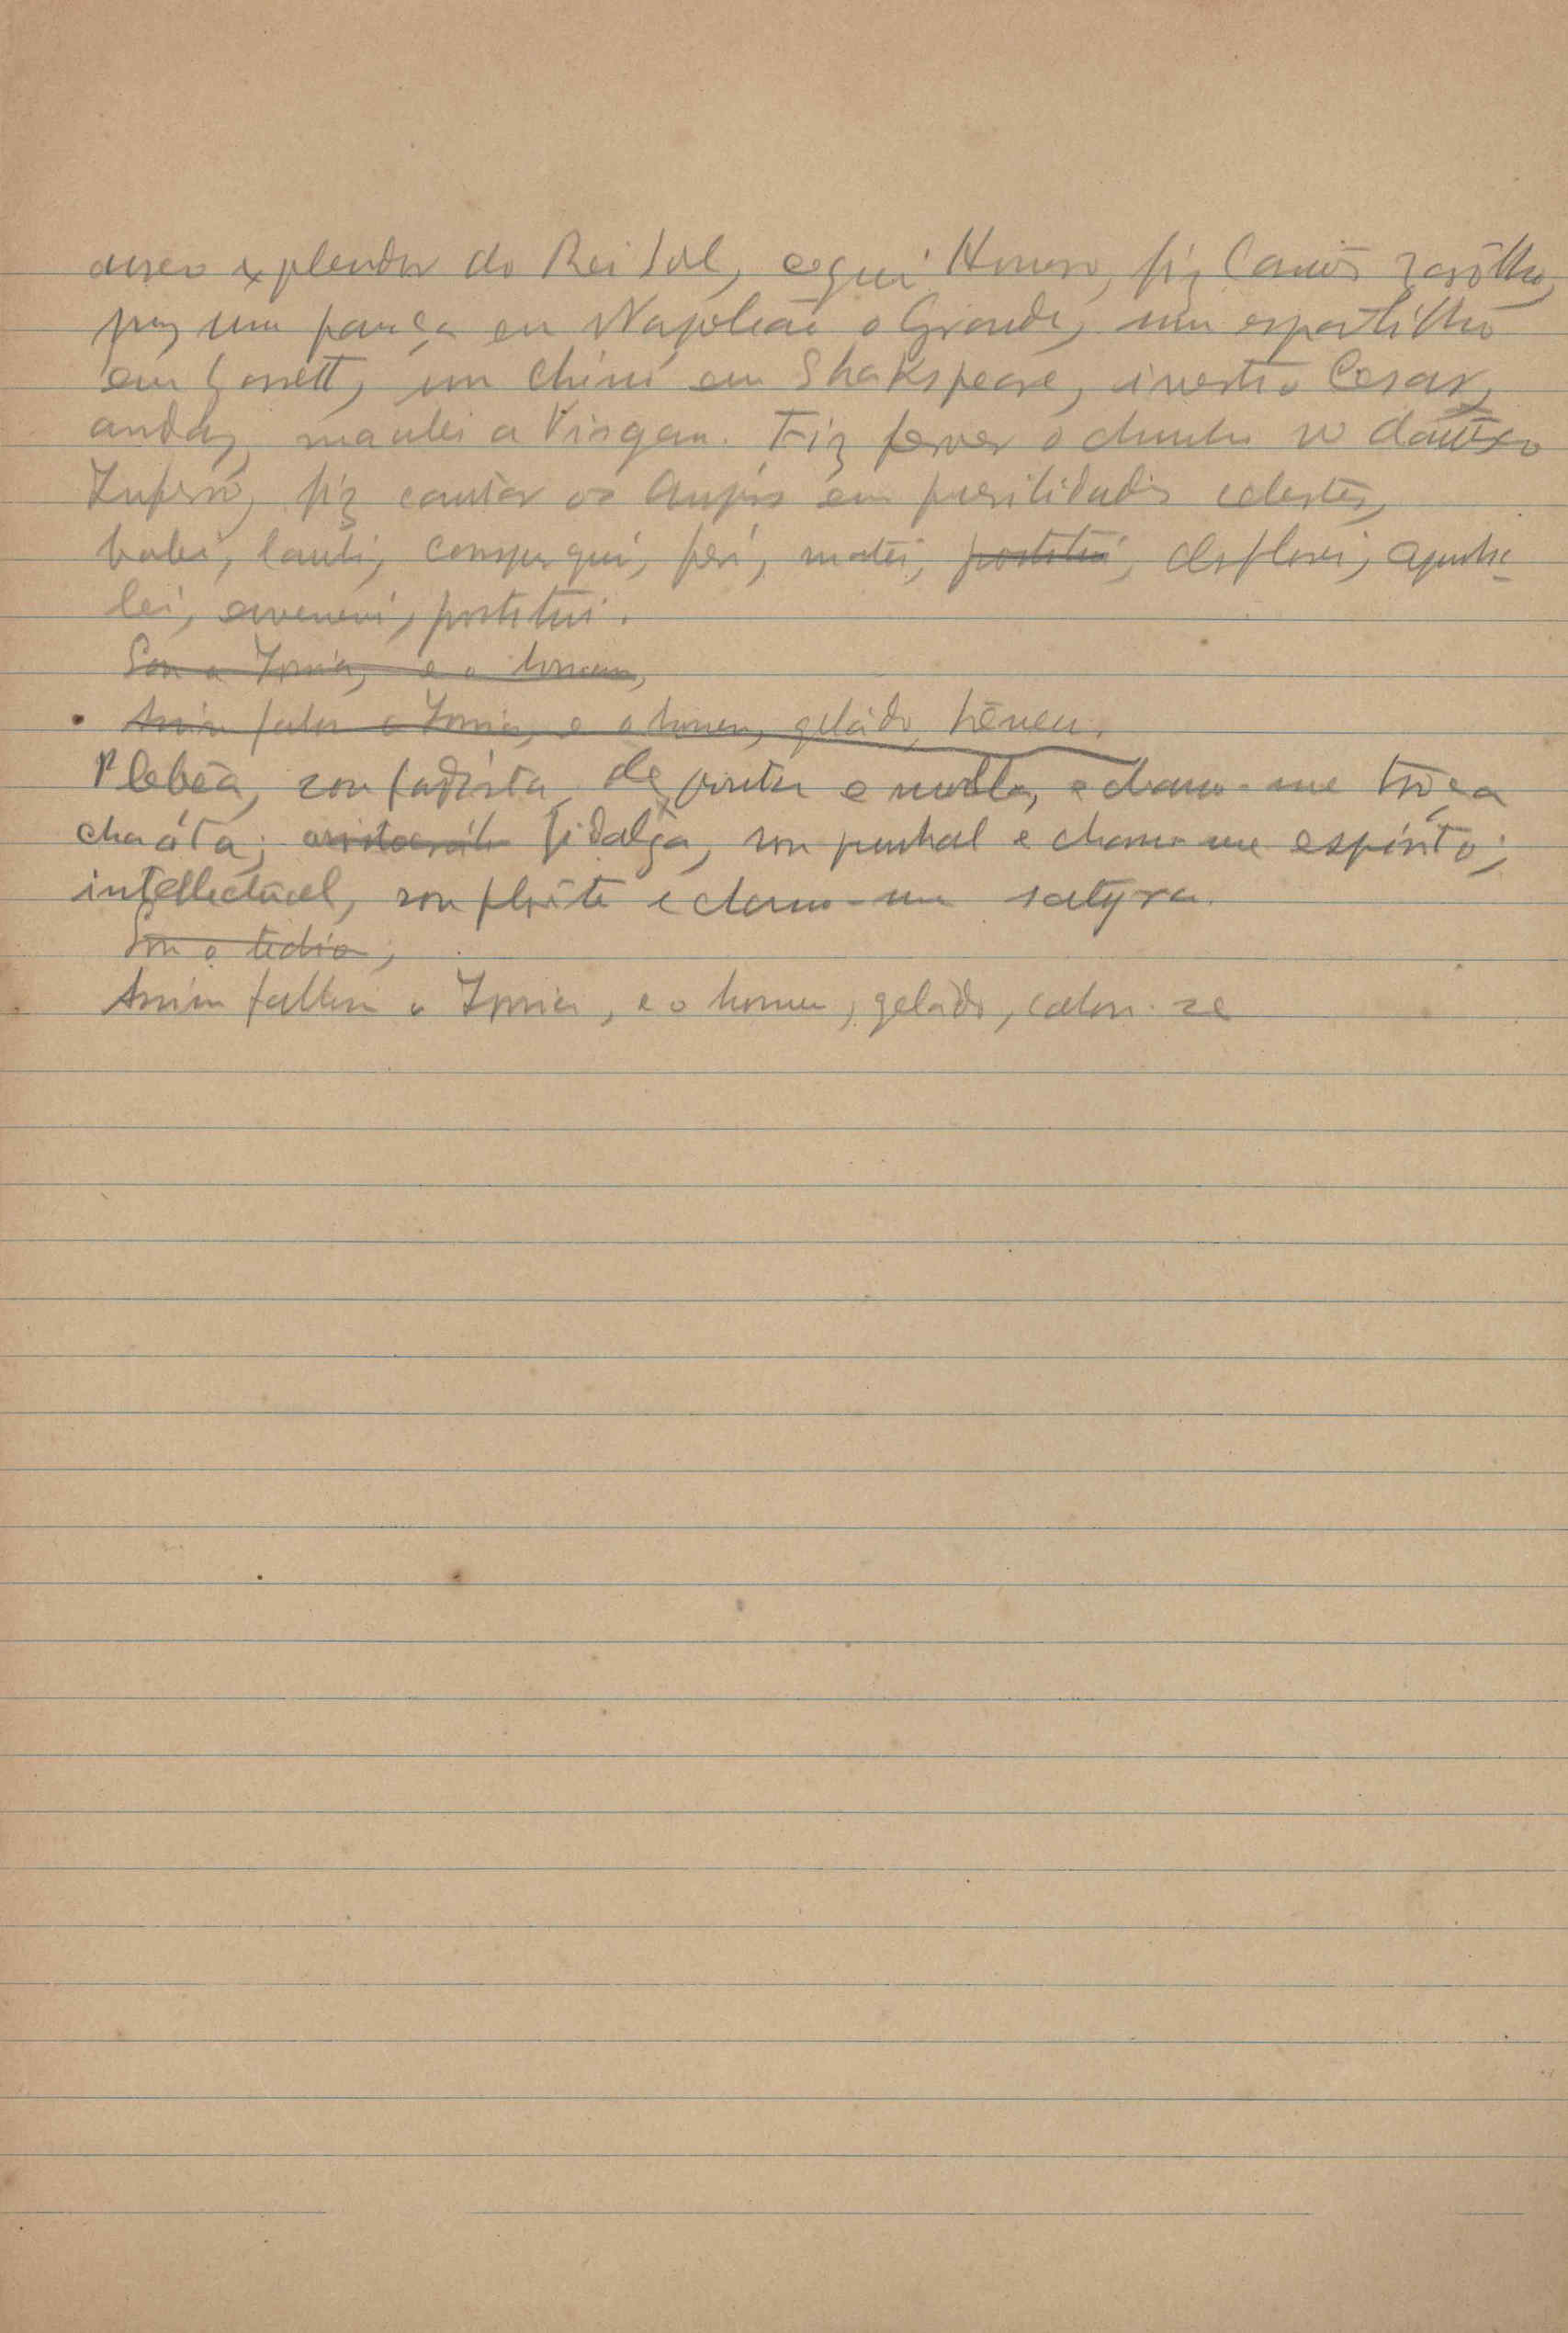 aureo explendor do Rei Sol, ceguei Homero, fiz Camões zarôlho,
puz uma pança em Napoleão o Grande, um espartilho
em Garrett, um chinó em Shakspeare, inverti o Cesar,
audaz, manchei a Virgem. Fiz ferver o chumbo no
Inferno, fiz cantar os Anjos em puerilidades celestes,
babei, cantei, conspurquei, feri, matei, prostitui, desflorei, apunha-
lei, envenenei, prostitui.
Sou a Ironia, e o homem,
Assim falou a Ironia, e o homem, gelado, tremeu.
Plebêa, sou fadista, de e navalha, e chamo-me tróça
charóta; aristocrata fidalga, sou punhal e chamo-me espirito;
intellectual, sou florête e chamo-me satyra.
Sou o tedio,
Assim fallou a Ironia, e o homem, gelado, calou-se